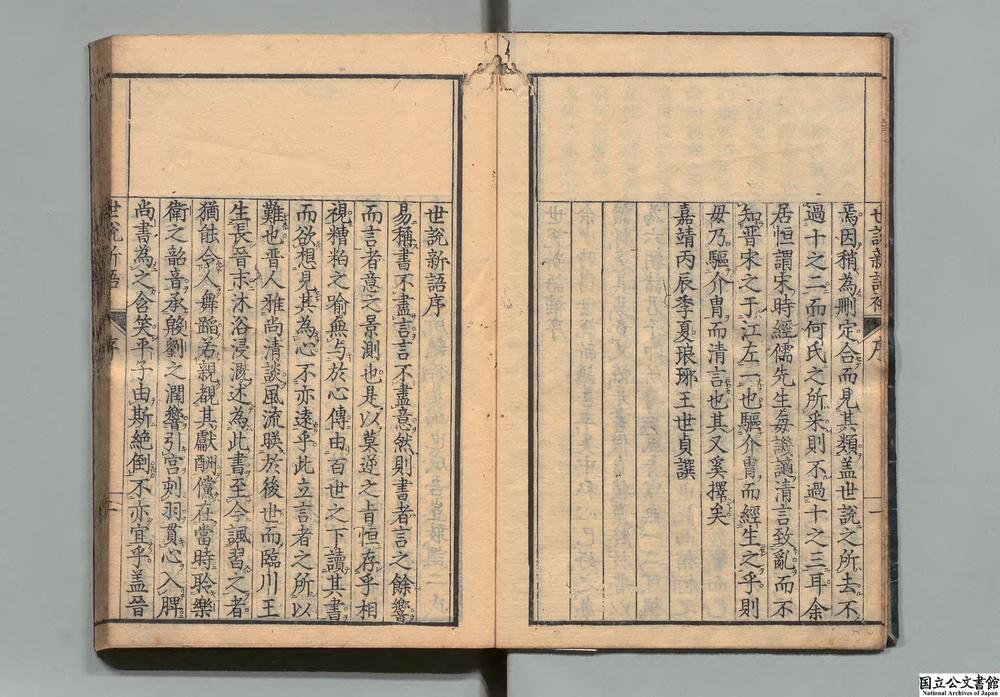 世說新語補 序 一
焉因稍為刪定合而見其類盖世說之所去不
過十之二而何氏之所采則不過十之三耳余
居恒謂宋時經儒先生每譏謫清言致亂而不
知晋宋之于江左一也驅介胄而經生之乎則
毋乃驅介胄而清言也其又奚擇矣
嘉靖丙辰季夏琅琊王世貞譔
世說新語序
易稱書不盡言言不盡意然則書者言之餘響
而言者意之景測也是以莫逆之旨恒存乎相
視糟粕之喻無与於心傳由百世之下讀其書
而欲想見其為心不亦遠乎此立言者之所以
難也晋人雅尚清談風流映於後世而臨川王
生長晋末沐浴浸溉述為此書至今諷習之者
猶能令人舞蹈若親覩其獻酬儻在當時聆樂
衛之韶音承殷劉之潤響引宮刻羽貫心入脾
尚書為之含笑平子由斯絶倒不亦宜乎盖晉
世說新語 序
国立公文書館
National Archives of Japan